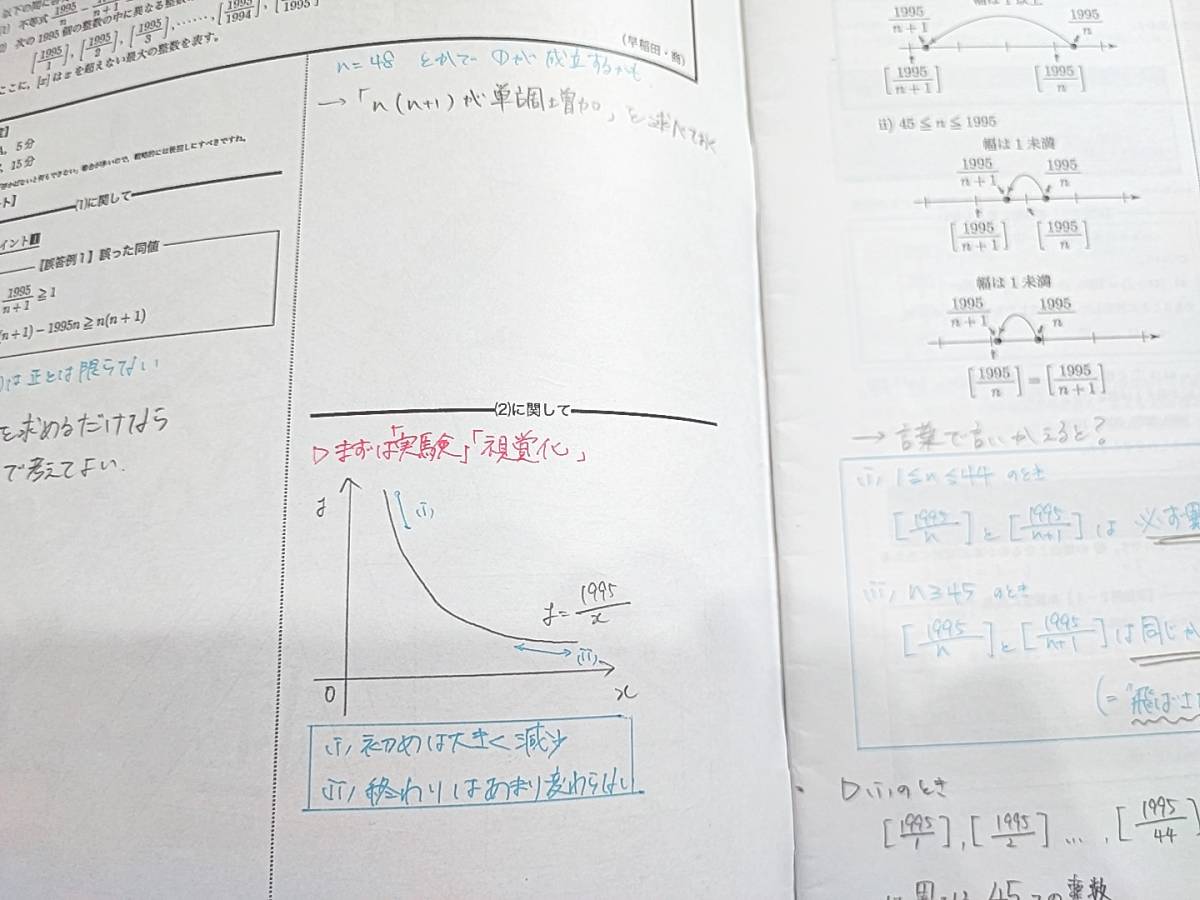 以下の問に
(1) 不等式 1995/n − 1995/n+1
次の1995個の整数の中に異なる整数
[1995/1], [1995/2], [1995/3], ……, [1995/1994], [1995
ここに, [x] は x を超えない最大の整数を表す。
(早稲田・商)
5分
15分
(1)に関して
イント1
【誤答例1】誤った同値
1995/n+1 ≧ 1
(n+1) − 1995n ≧ n(n+1)
は正とは限らない
を求めるだけなら
で考えてよい.
n=48 とかで ①が成立するかも
→「n(n+1)が単調増加」と述べておく
(2)に関して
▷まずは「実験」「視覚化」
y
(i)
y= 1995/x
(ii)
0
x
(i) 初めは大きく減少
(ii) 終わりはあまり変わらない
1995/n+1 1995/n
[1995/n+1] [1995/n]
ii) 45 ≦ n ≦ 1995
幅は1未満
1995/n+1 1995/n
[1995/n+1] [1995/n]
幅は1未満
1995/n+1 1995/n
[1995/n] = [1995/n+1]
→ 言葉で言いかえると?
(i) 1≦n≦44 のとき
[1995/n]と[1995/n+1]は 必ず異
(ii) n≧45 のとき
[1995/n]と[1995/n+1]は同じか
(="飛ばさ
▷(i)のとき
[1995/1], [1995/2] …, [1995/44]